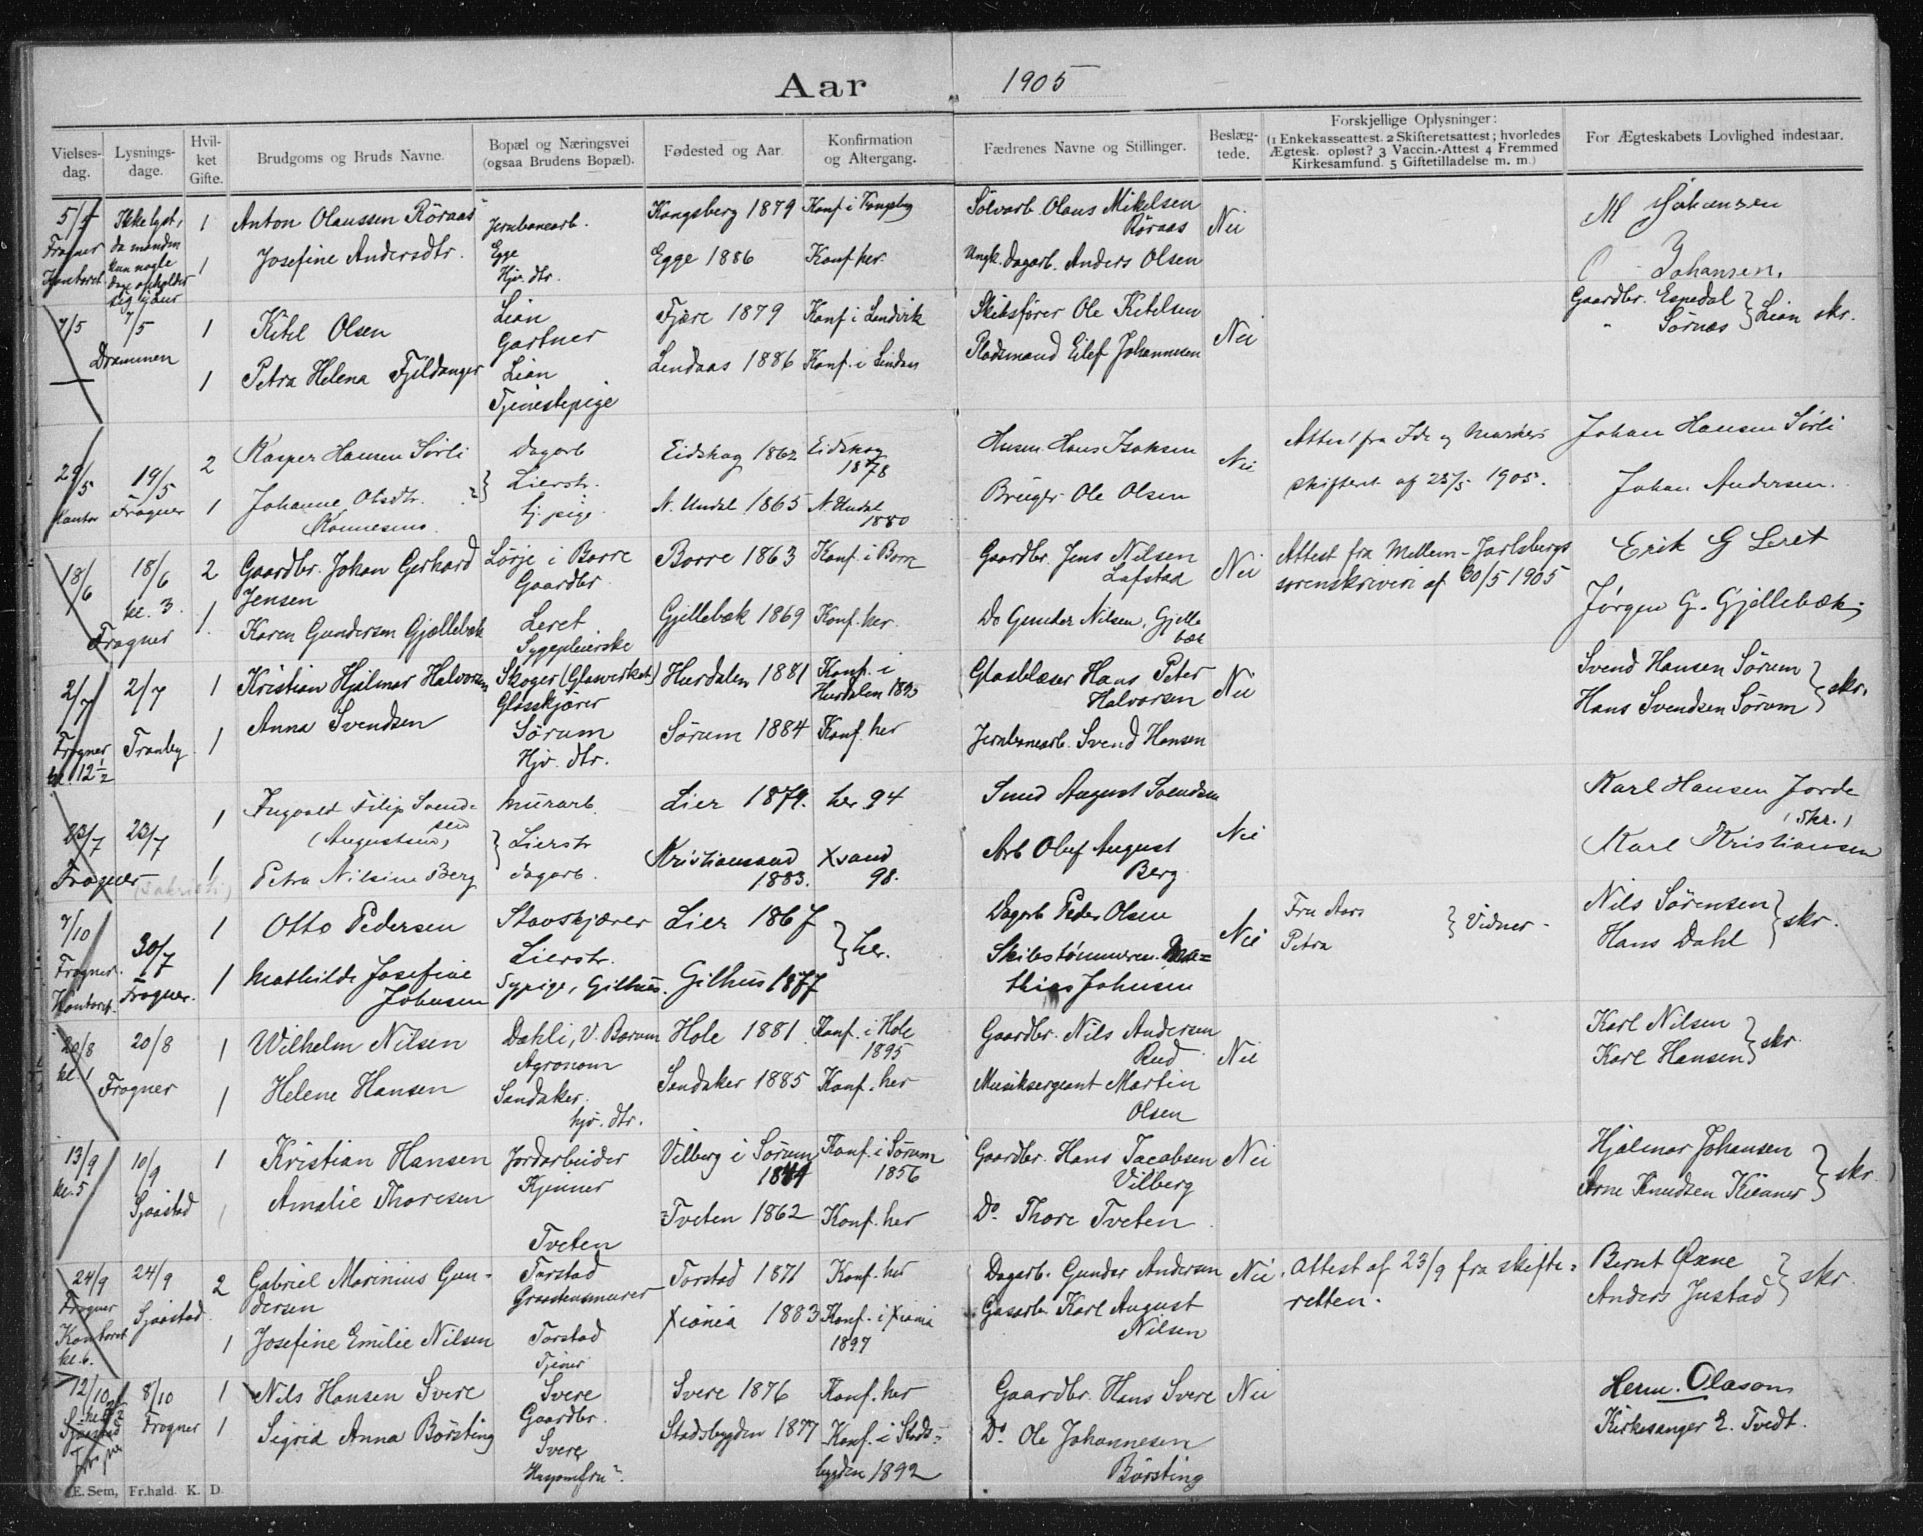 Aar 1905
Vielses-dag.
Lysnings-dage.
Hvil-ket Gifte.
Brudgoms og Bruds Navne.
Bopæl og Næringsvei (ogsaa Brudens Bopæl).
Fødested og Aar.
Konfirmation og Altergang.
Fædrenes Navne og Stillinger.
Beslæg-tede.
Forskjellige Oplysninger:
(1 Enkekasseattest. 2 Skifteretsattest; hvorledes
Ægtesk. opløst? 3 Vaccin.-Attest 4 Fremmed
Kirkesamfund. 5 Giftetilladelse m. m.)
For Ægteskabets Lovlighed indestaar.
5/5 Frogner Kontoret
Ikke lyst, da manden kun nogle dage opholder sig hjem
1 Anton Olaussen Röraas Jernbanearb. Kongsberg 1879 Konf. i Kongsbg Sölvarb. Olaus Mikelsen Röraas Nei M Johansen
1 Josefine Andersdtr. Egge Hjv. dtr. Egge 1886 Konf. her. Ungk. Dagarb. Anders Olsen O Johansen.
7/5 7/5 Drammen
1 Kitil Olsen Lian Gartner Fjære 1879 Konf. i Landvik Skibsfører Ole Kitilsen Nei Gaardbr. Espedal
" Sørnæs } Lian skr.
1 Petra Helena Fjeldanger Lian Tjenestepige Lindaas 1886 Konf. i Lindaas Pladsmand Eilef Johannesen
29/5 Kontor 19/5 Frogner
2 Kasper Hansen Sørli Dagarb Eidskog 1862 Eidskog 1878 Husm. Hans Isaksen Nei Attest fra Ide og Markers
skifteret af 25/5 1905. Johan Hansen Sørli
1 Johanne Olsdtr. Ronnesmo } Lierstr. tj. pige N. Undal 1865 N. Undal 1880 Bruger Ole Olsen Johan Andersen.
18/6 18/6 kl. 3. Frogner
2 Gaardbr. Johan Gerhard Jensen Lørje i Borre Gaardbr. Borre 1863 Konf. i Borre Gaardbr. Jens Nilsen Lafstad Nei Attest fra Mellem-Jarlsbergs
sorenskriveri af 30/5 1905 Erik G Leret
1. Karen Gundersen Gjællebæk Leret Sygepleierske Gjellebæk 1869 Konf. her. Do Gunder Nilsen, Gjellebæk Jørgen G. Gjellebæk
2/7 Frogner kl. 12 1/2 2/7 Tranby
1 Kristian Hjalmar Halvorsen Skoger (Glasverket) Glasskjærer Hurdalen 1881 Konf. i Hurdalen 1895 Glasblæser Hans Peter Halvorsen Nei Svend Hansen Sørum
Hans Svendsen Sørum } skr.
1 Anna Svendsen Sørum Hjv. dtr. Sørum 1884 Konf. her Jernbanearb. Svend Hansen
23/7 23/7 Frogner (Sakristi)
1 Ingvald Filip Svendsen (Augustsen) Murarb. } Lierstr Lier 1879. her 94 Smed August Svendsen Nei Karl Hansen Jorde (skr.)
1 Petra Nilsine Berg dagarb. Kristiansand 1883. Xsand 98. Arb Oluf August Berg Karl Kristiansen
7/10 Frogner Kontoret 30/7 Frogner.
1 Otto Pedersen Stavskjærer Lierstr. Lier 1867 } her. Dagarb Peder Olsen Nei Fru Aars
Petra } Vidner. Nils Sørensen
Hans Dahl } skr.
1 Mathilde Josefine Johnsen Sypige, Gilhus. Gilhus 1877 Skibstømmerm. Mathias Johnsen
20/8 kl. 1 20/8 Frogner
1 Wilhelm Nilsen Dæhli, V. Bærum Agronom Hole 1881 Konf. i Hole 1895 Gaardbr. Nils Andersen Rud Nei Karl Nilsen
Karl Hansen } skr.
1 Helene Hansen Sandaker hjv. dtr. Sandaker 1885 Konf. her Musiksergeant Martin Olsen
13/9 kl. 5 10/9 Sjaastad
1 Kristian Hansen Jordarbeider Kjenner Vilberg i Sørum 1841 Konf. i Sørum 1856 Gaardbr. Hans Jacobsen Vilberg Nei Hjalmar Johansen
Arne Knudsen Kjenner } skr.
1 Amalie Thoresen Tveten Tveten 1862 Konf. her Do. Thore Tveten
24/9 Frogner Kontoret kl. 6. 24/9 Sjaastad.
2 Gabriel Marinius Gundersen Torstad Graastensmurer Torstad 1871 Konf. her Dagarb. Gunder Andersen Nei. Attest af 23/9 fra skifteretten. Bernt Oxne
Anders Justad } skr.
1 Josefine Emilie Nilsen Torstad Tjener Xiania 1883 Konf. i Xiania 1897 Gasarb. Karl August Nilsen
12/10 Sjaastad 8/10 Frogner
1 Nils Hansen Svere Svere Gaardbr. Svere 1876 Konf. her Gaardbr. Hans Svere Nei Herm. Olasom
1 Sigrid Anna Børsting Svere Husjomfru. Stadsbygden 1877 Konf. i Stadsbygden 1892 Do. Ole Johannesen Børsting Kirkesanger E. Tvedt.
E. Sem, Fr.hald. K. D.